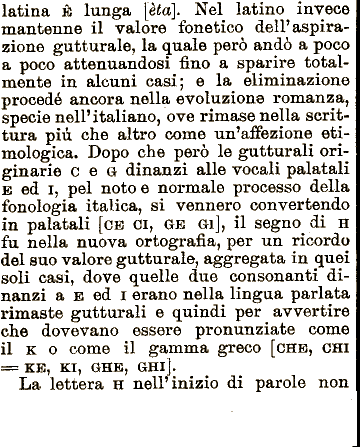 latina ē lunga [èta]. Nel latino invece
mantenne il valore fonetico dell'aspira-
zione gutturale, la quale però andò a poco
a poco attenuandosi fino a sparire total-
mente in alcuni casi; e la eliminazione
procedé ancora nella evoluzione romanza,
specie nell'italiano, ove rimase nella scrit-
tura più che altro come un'affezione eti-
mologica. Dopo che però le gutturali ori-
ginarie C e G dinanzi alle vocali palatali
E ed I, pel noto e normale processo della
fonologia italica, si vennero convertendo
in palatali [CE CI, GE GI], il segno di H
fu nella nuova ortografia, per un ricordo
del suo valore gutturale, aggregata in quei
soli casi, dove quelle due consonanti di-
nanzi a E ed I erano nella lingua parlata
rimaste gutturali e quindi per avvertire
che dovevano essere pronunziate come
il K o come il gamma greco [CHE, CHI
= KE, KI, GHE, GHI].
La lettera H nell'inizio di parole non